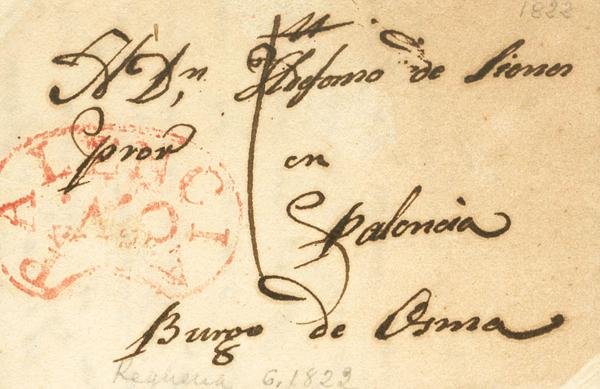 1822
A Dn Ildefonso de Sienes
pror en
Palencia
Burgo de Osma
PALENCIA
6, 1822